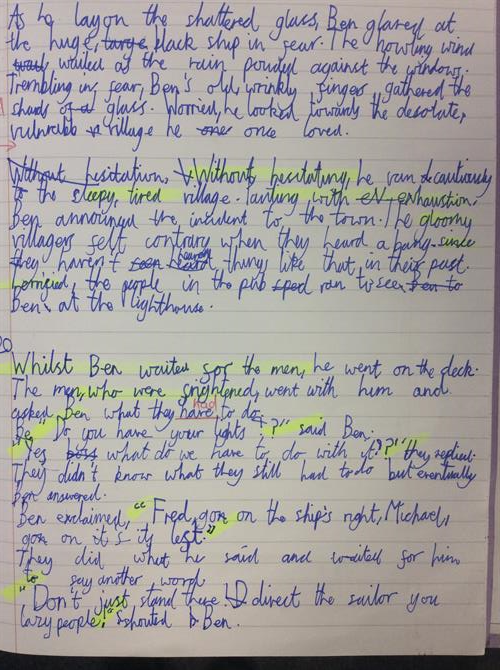 As he lay on the shattered glass, Ben glared at
the huge, large black ship in fear. The howling wind
wailed as the rain pounded against the window.
Trembling in fear, Ben's old, wrinkly fingers gathered the
shards of a glass. Worried, he looked towards the desolate,
vulnerable village he once loved.
Without hesitation, Without hesitating, he ran cautiously
to the sleepy, tired village. Panting with exhaustion,
Ben announced the incident to the town. The gloomy
villagers felt contrary when they heard a bang since
they haven't seen heard things like that in their past.
Worried, the people in the pub sped ran to see Ben to
Ben at the lighthouse.
Whilst Ben waited for the men, he went on the deck.
The men, who were frightened, went with him and
asked Ben what they have had to do.
"Do you have your lights?" said Ben.
"Yes what do we have to do with it?" they replied.
They didn't know what they still had to do but eventually
Ben answered.
Ben exclaimed, "Fred, go on the ship's right, Michael,
go on it's left."
They did what he said and waited for him
to say another word
"Don't just stand there! D direct the sailor you
lazy people!" shouted Ben.